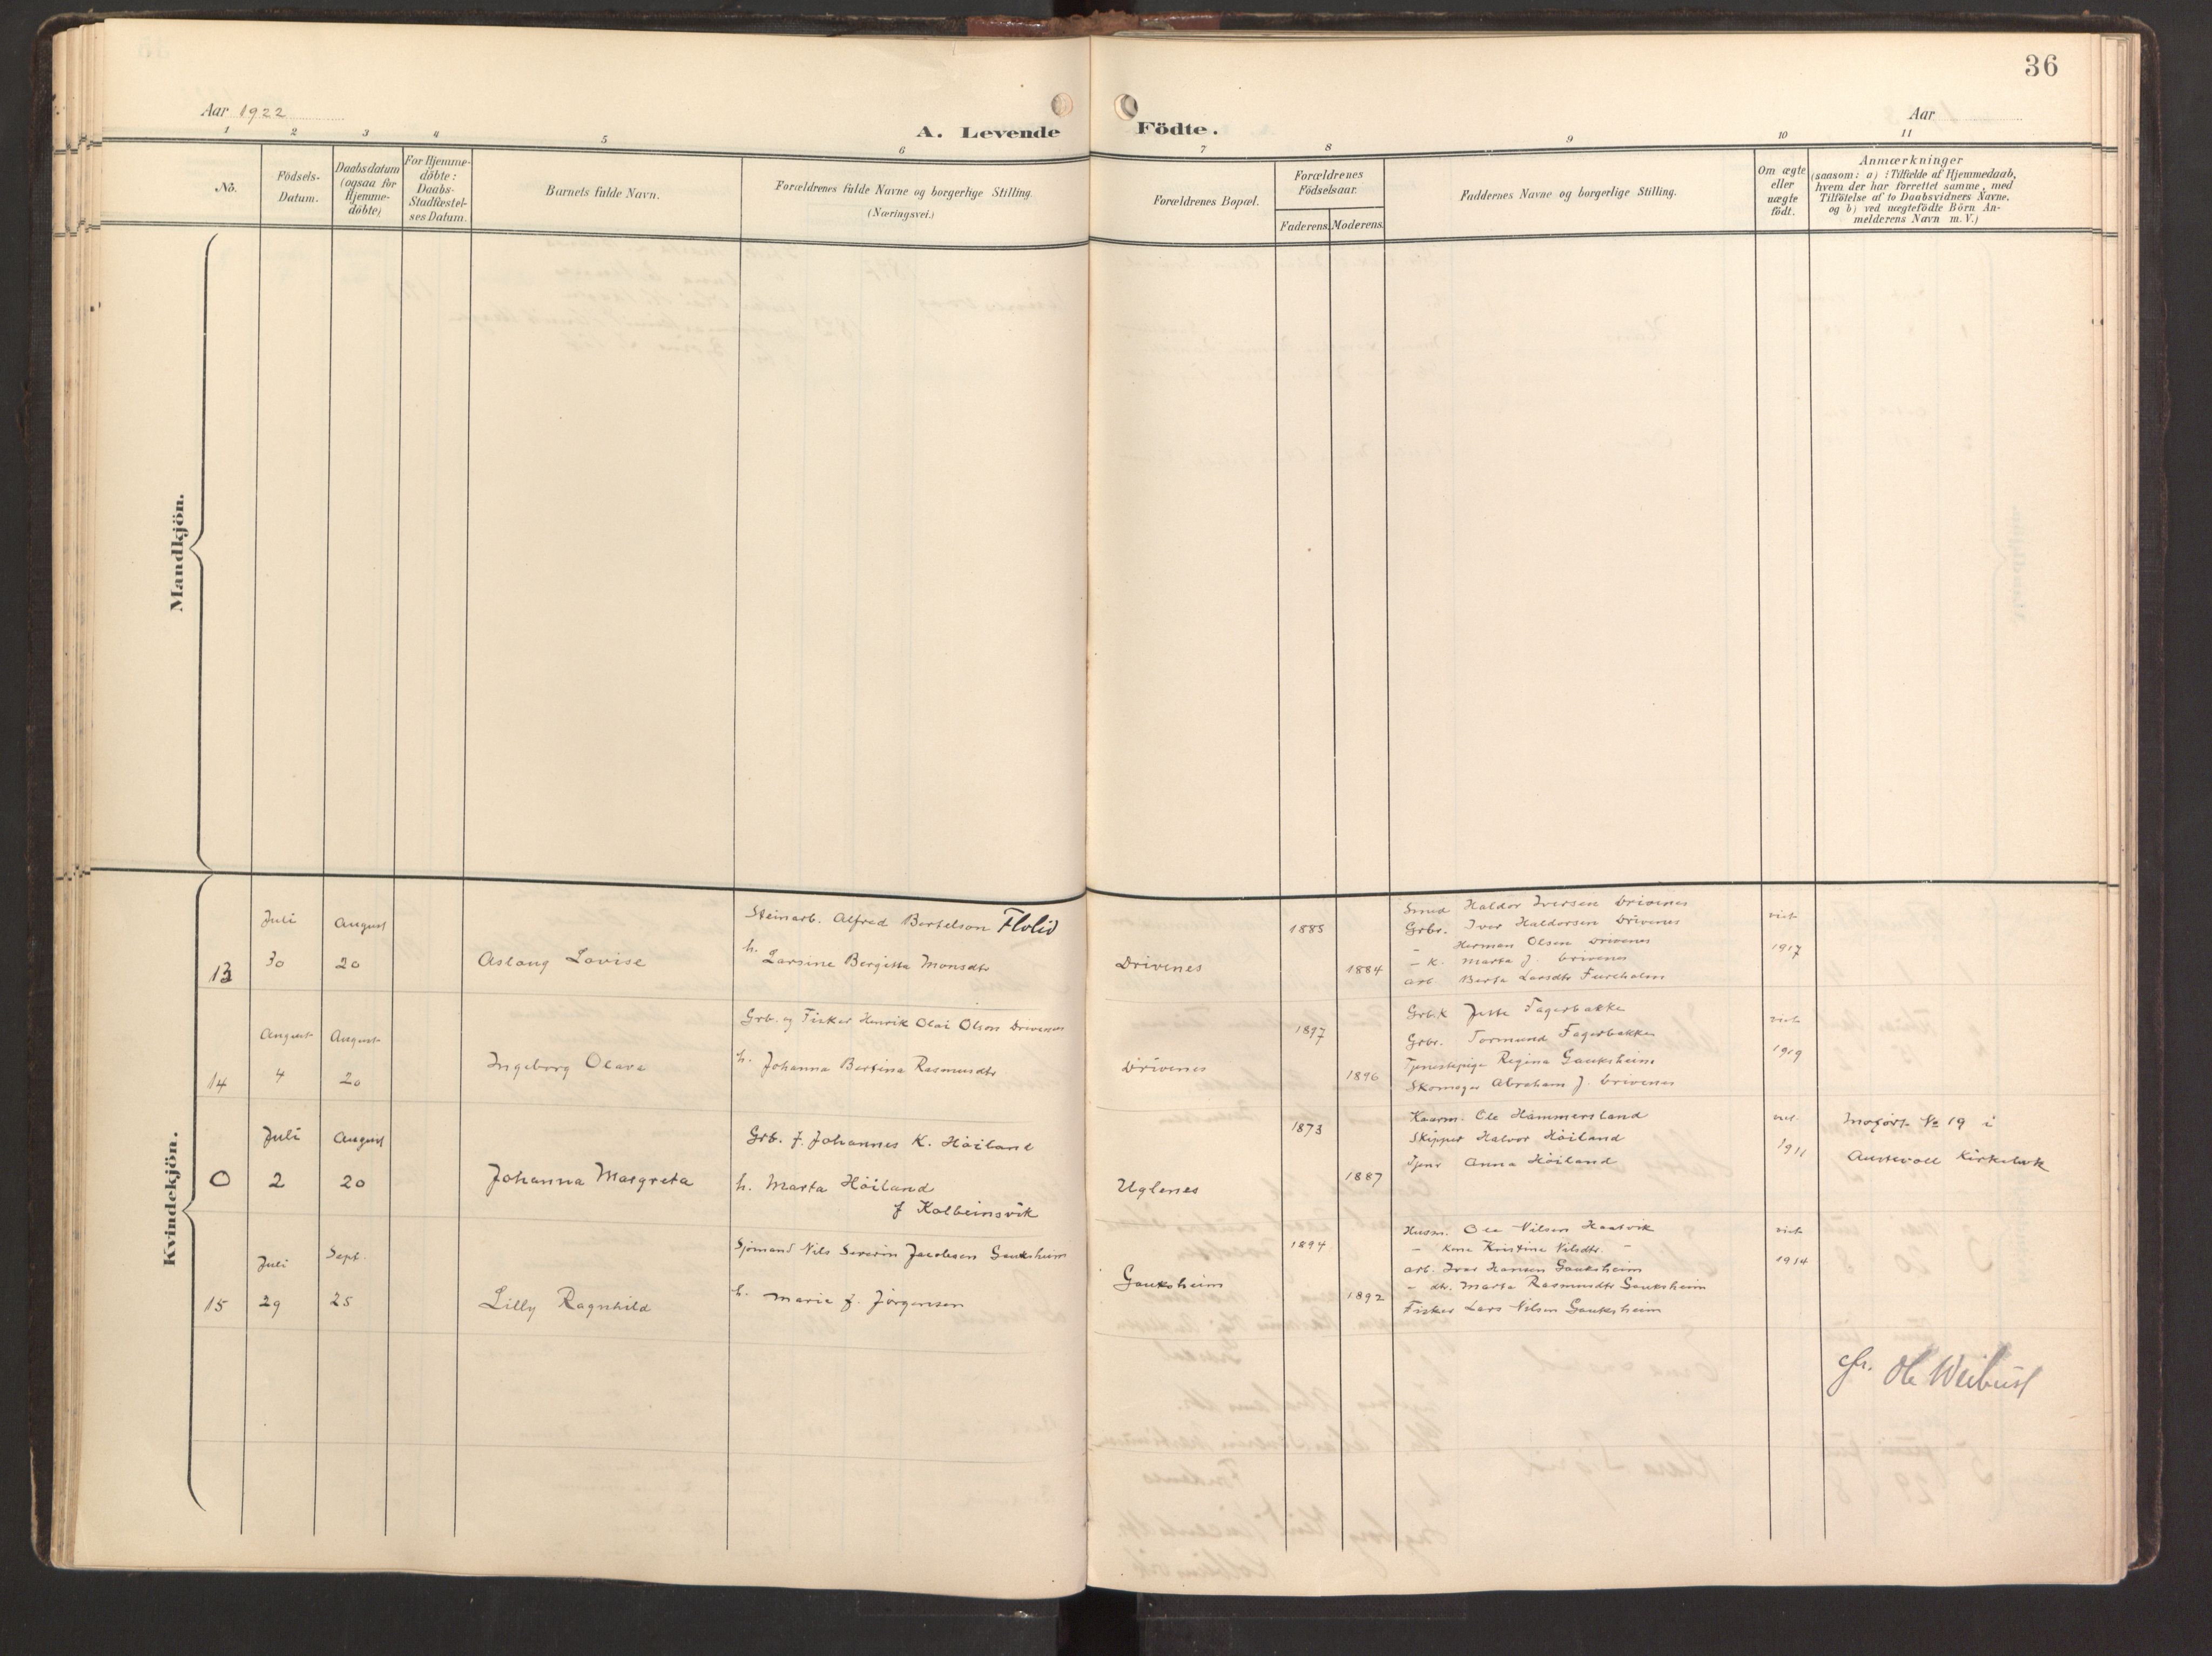 36
Aar 1922
Aar
1 2 3 4 5 6 7 8 9 10 11
A. Levende Födte.
No.
Födsels-Datum.
Daabsdatum (ogsaa for Hjemme-döbte)
For Hjemme-döbte: Daabs-Stadfæstel-ses Datum.
Barnets fulde Navn.
Forældrenes fulde Navne og borgerlige Stilling.
(Næringsvei.)
Forældrenes Bopæl.
Forældrenes Födselsaar.
Faderens. Moderens.
Faddernes Navne og borgerlige Stilling.
Om ægte eller uægte födt.
Anmærkninger
(saasom: a) i Tilfælde af Hjemmedaab,
hvem der har forrettet samme, med
Tilföielse af to Daabsvidners Navne,
og b) ved uægtefödte Börn An-
melderens Navn m. V.)
Mandkjön.
Kvindekjön.
13
Juli 30
August 20
Aslaug Lovise
Steinarb. Alfred Bertelson Flolid
h. Larsine Bergitta Monsdtr
Drivenes
1885
1884
Smed Haldor Iversen Drivenes
Grbr. Iver Haldorsen Drivenes
- Herman Olsen Drivenes
- K. Marta J. Drivenes
arb. Berta Larsdtr Fureholm
viet
1917
14
August 4
August 20
Ingeborg Olava
Grb. og Fisker Henrik Olai Olson Drivenes
h. Johanna Bertina Rasmusdtr
Drivenes
1897
1896
Grb.k Jette Fagerbakke
Grbr. Tormund Fagerbakke
Tjenestepige Regina Gauksheim
Skomager Abraham J. Drivenes
viet
1919
0
Juli 2
August 20
Johanna Margreta
Grb. J. Johannes K. Höiland
h. Marta Höiland
f Kolbeinsvik
Uglenes
1873
1887
Kaarm. Ole Hammersland
Skipper Halvor Höiland
Tjener Anna Höiland
viet
1911
Indfört No 19 i
Austevoll Kirkebok
15
Juli 29
Sept. 25
Lilly Ragnhild
Sjömand Nils Severin Jacobsen Gauksheim
h. Marie f. Jörgensen
Gauksheim
1894
1892
Husm. Ole Nilsen Haatvik
- kone Kristine Nilsdtr. -
arb. Ivar Hansen Gauksheim
- dtr. Marta Rasmusdtr Gauksheim
Fisker Lars Nilsen Gauksheim
viet
1914
cfr. Ole Weibust